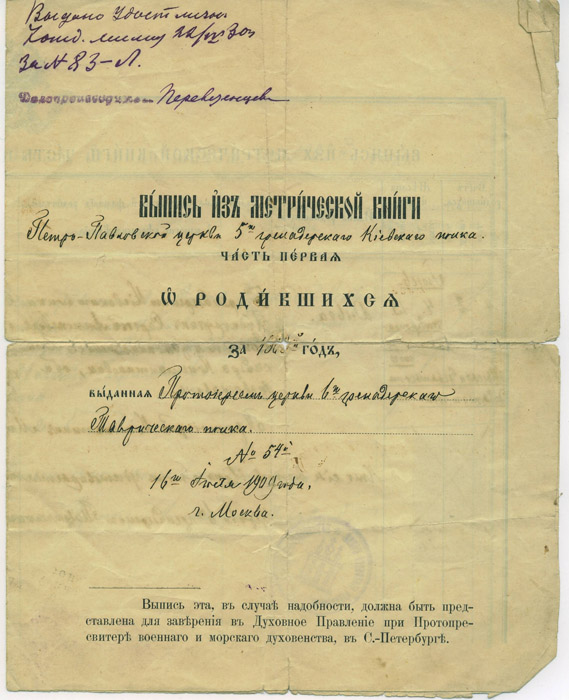 Выдано Удост личн
22/
За № 83-Л.
Делопроизводитель Перевезенцев
ВЫ́ПИСЬ И҆ЗЪ МЕТРИ́ЧЕСКОЙ КНИ́ГИ
Петро-Павловской церкви 5го гренадерскаго Кіевскаго полка.
ЧАСТЬ ПЕ́РВАЯ
Ѽ РОДИ́ВШИХСЯ
ЗА 18 ГО́ДЪ,
ВЫ́ДАННАЯ Протоіереемъ церкви 6го гренадерскаго
Таврическаго полка.
№ 54й
16го Іюля 1909 года.
г. Москва.
Выпись эта, въ случаѣ надобности, должна быть пред-
ставлена для завѣренія въ Духовное Правленіе при Протопре-
свитерѣ военнаго и морскаго духовенства, въ С.-Петербургѣ.